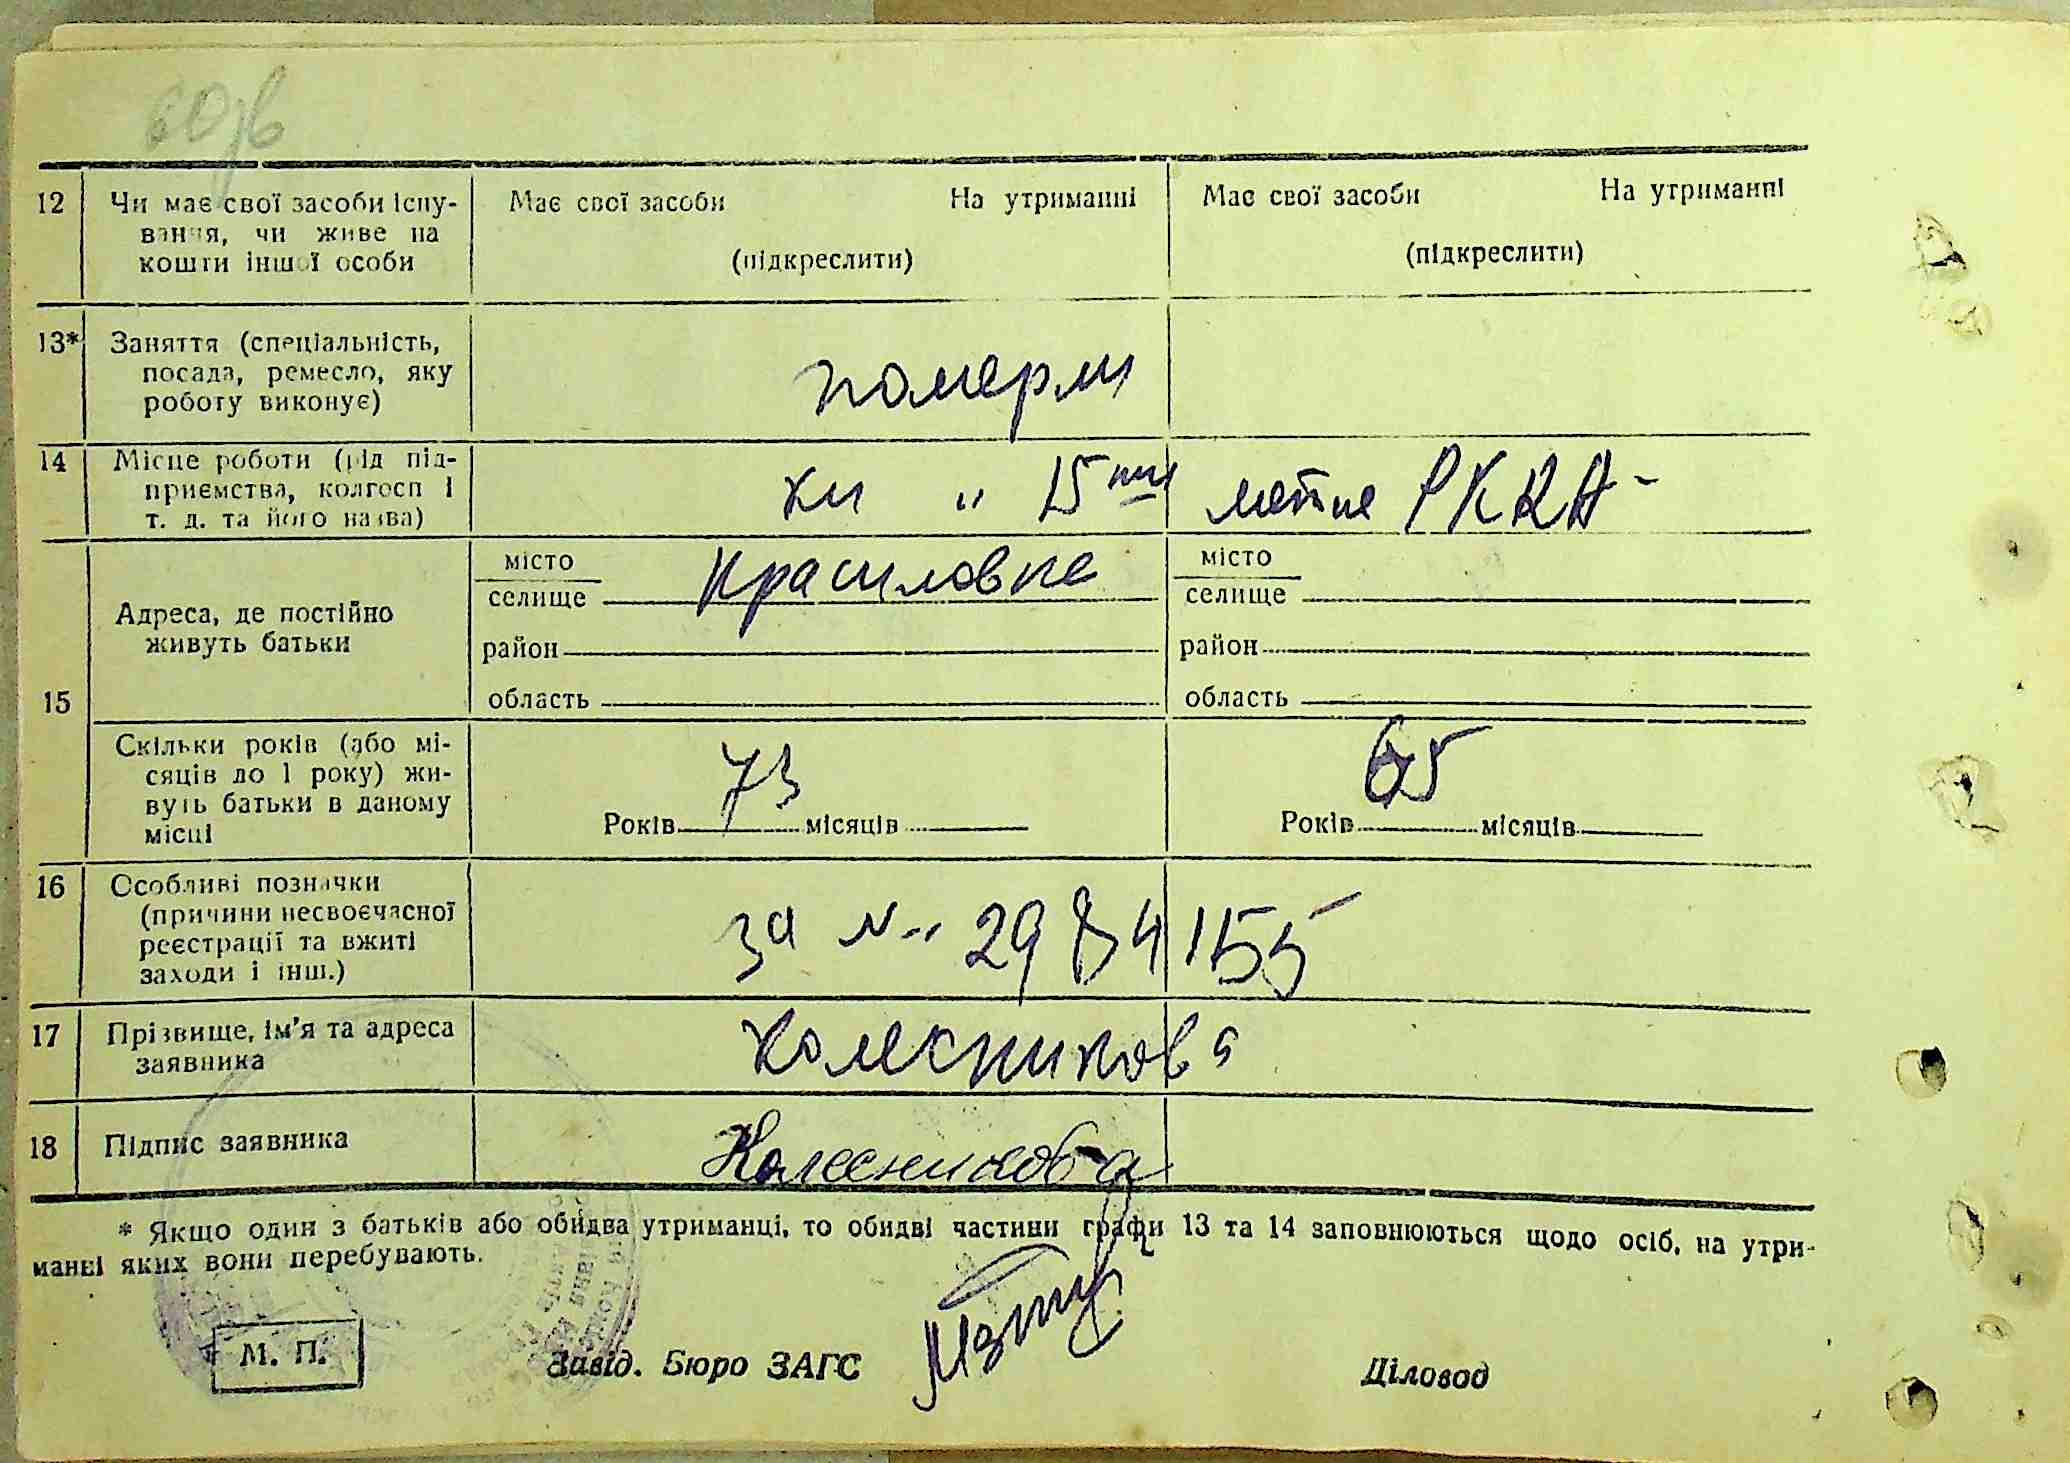 12 Чи має свої засоби існу- Має свої засоби На утриманні Має свої засоби На утриманні
вання, чи живе на
кошти іншої особи (підкреслити) (підкреслити)
13* Заняття (спеціальність,
посада, ремесло, яку померли
роботу виконує)
14 Місце роботи (рід під-
приємства, колгосп і ки " 15 летие РККА
т. д. та його назва)
місто Красиловке місто
селище селище
Адреса, де постійно
живуть батьки район район
15 область область
Скільки років (або мі-
сяців до 1 року) жи- 73 65
вуть батьки в даному
місці Років місяців Років місяців
16 Особливі позначки
(причини несвоєчасної
реєстрації та вжиті за №
заходи і інш.)
17 Прізвище, ім'я та адреса Колесникова
заявника
18 Підпис заявника Колесникова
* Якщо один з батьків або обидва утриманці, то обидві частини графи 13 та 14 заповнюються щодо осіб, на утри-
манні яких вони перебувають.
М. П. Завід. Бюро ЗАГС Діловод